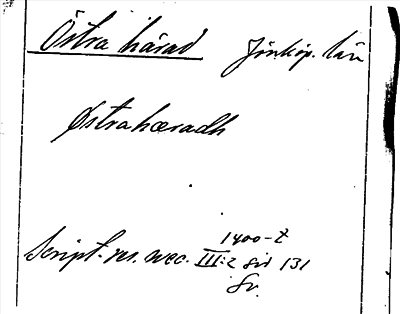 Östra härad Jönköp. län
Østrahæradh
1400-t
Script. rer. svec. III:2 sid 131
Sv.